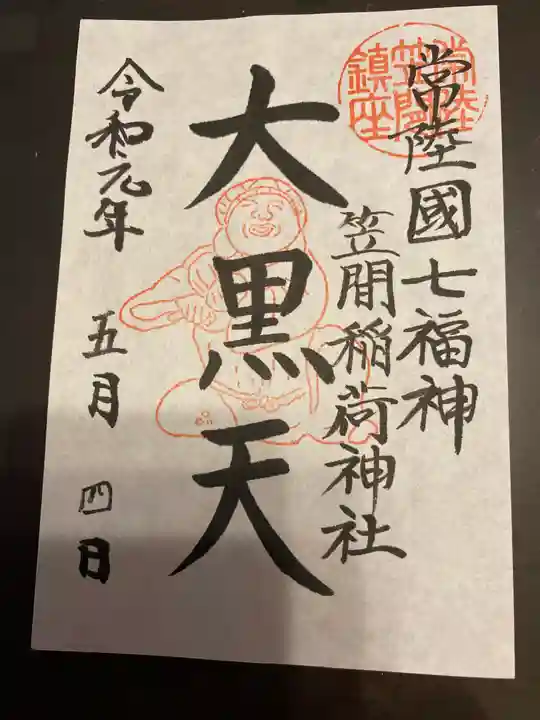 常陸國七福神
笠間稲荷神社
大黒天
令和元年
五月
四日
常陸
笠間
鎮座